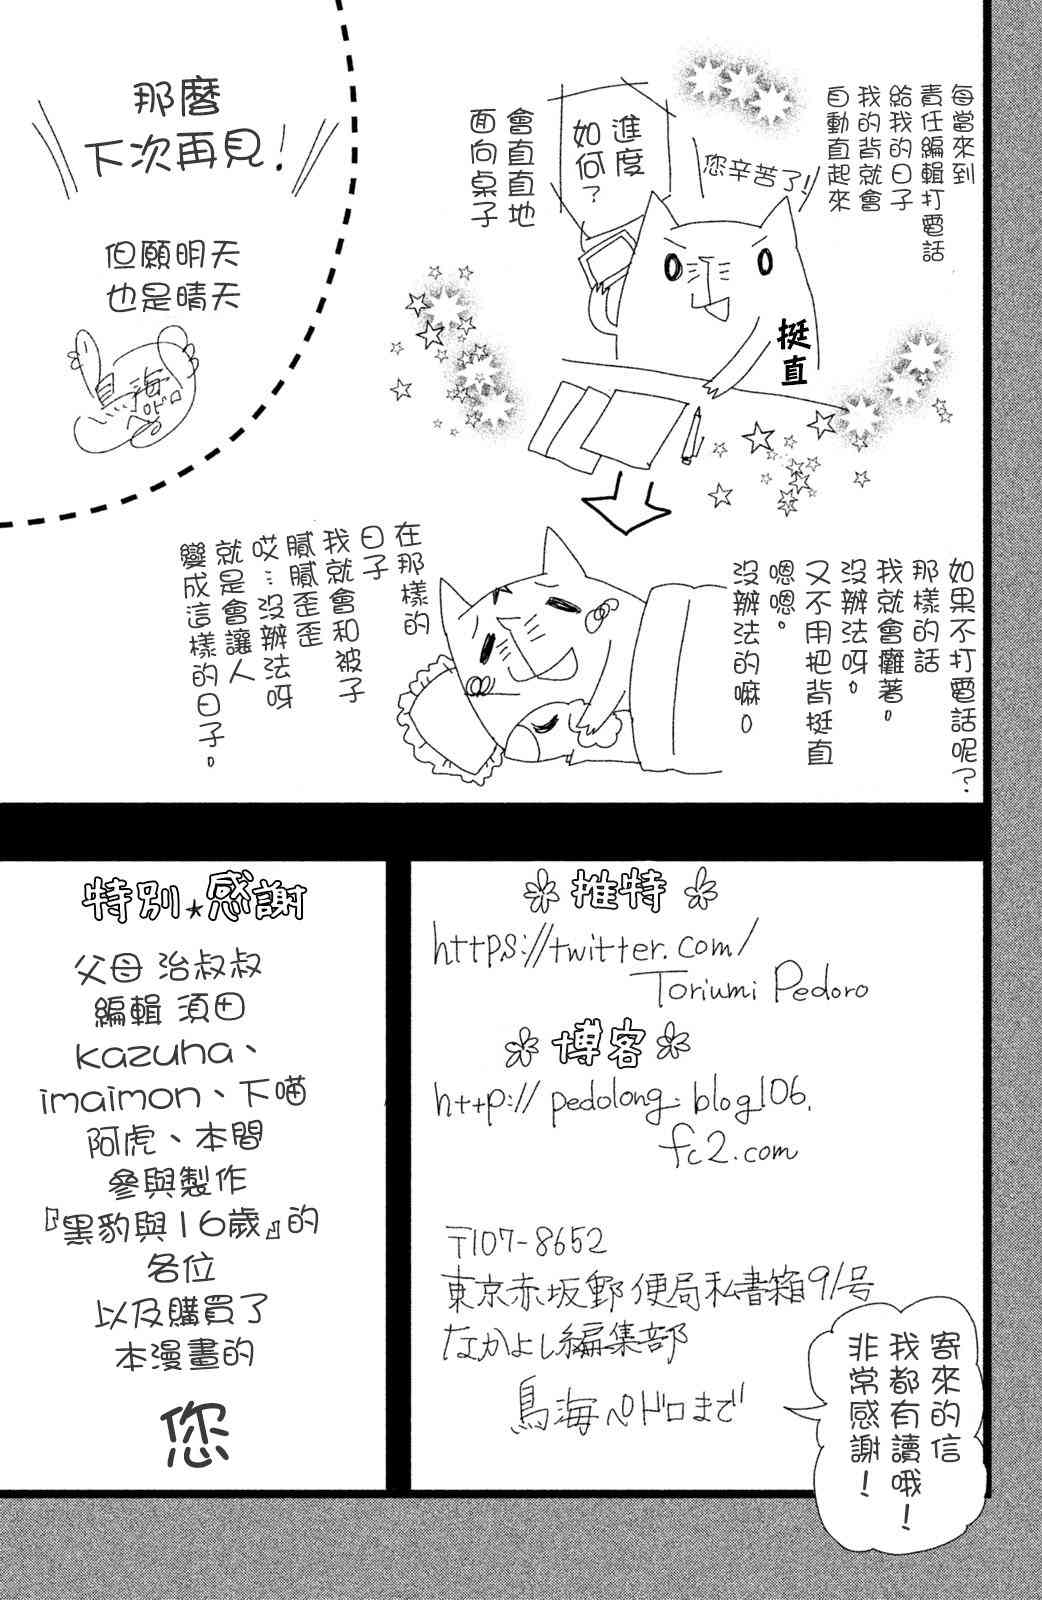 每當來到
責任編輯打電話
給我的日子
我的背就會
自動直起來
您辛苦了!
進度
如何?
會直直地
面向桌子
挺直
那麼
下次再見!
但願明天
也是晴天
鳥海
ペドロ
如果不打電話呢?
那樣的話
我就會癱著。
沒辦法呀。
又不用把背挺直
嗯嗯。
沒辦法的嘛。
在那樣的
日子
我就會和被子
膩膩歪歪
哎…沒辦法呀
就是會讓人
變成這樣的日子。
推特
https://twitter.com/
Toriumi Pedoro
博客
http://pedolong.blog106.
fc2.com
〒107-8652
東京赤坂郵便局私書箱91号
なかよし編集部
鳥海ペドロまで
寄來的信
我都有讀哦!
非常感謝!
特別★感謝
父母 治叔叔
編輯 須田
kazuha、
imaimon、下喵
阿虎、本間
參與製作
『黑豹與16歲』的
各位
以及購買了
本漫畫的
您